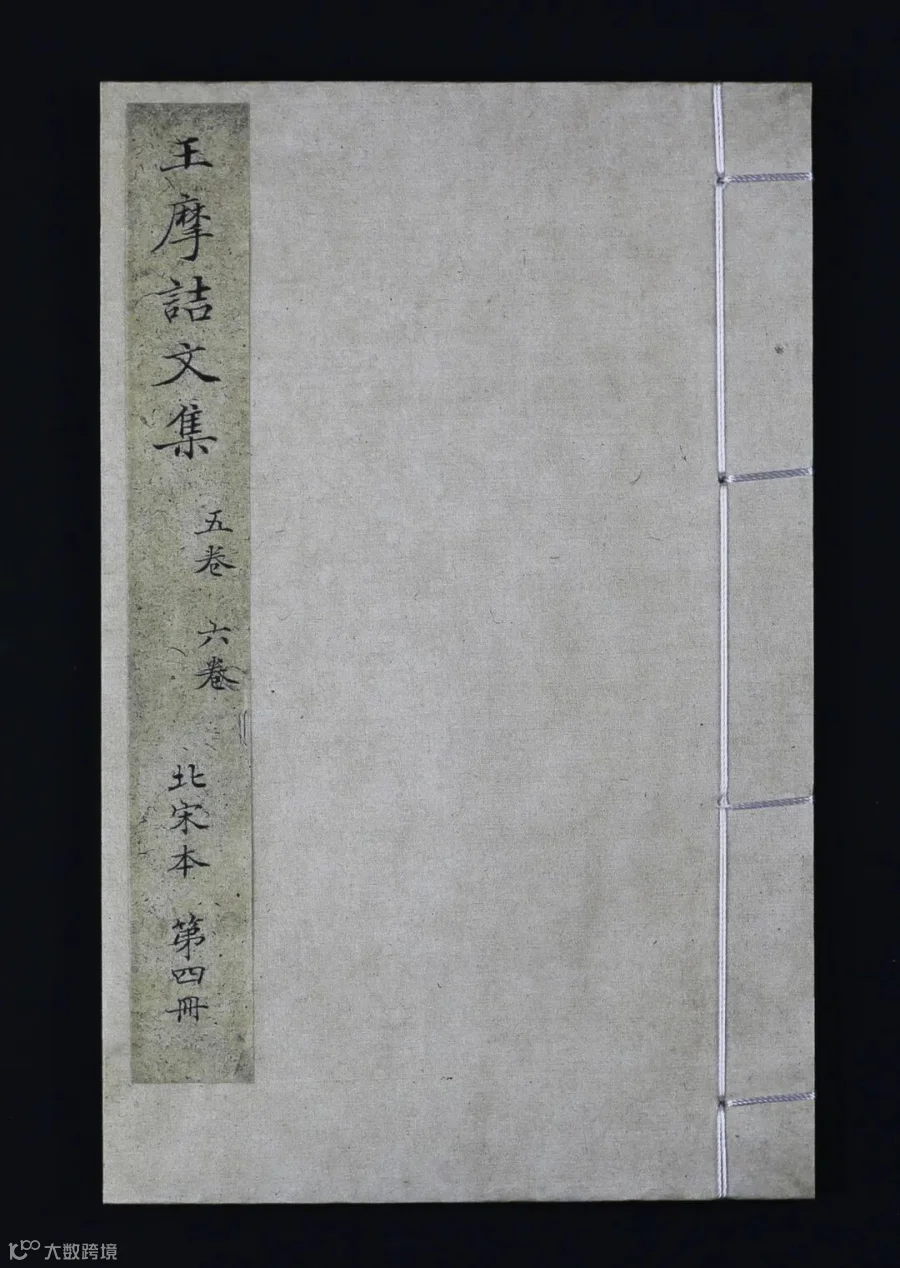 王摩詰文集
五卷 六卷
北宋本 第四冊
大数跨境